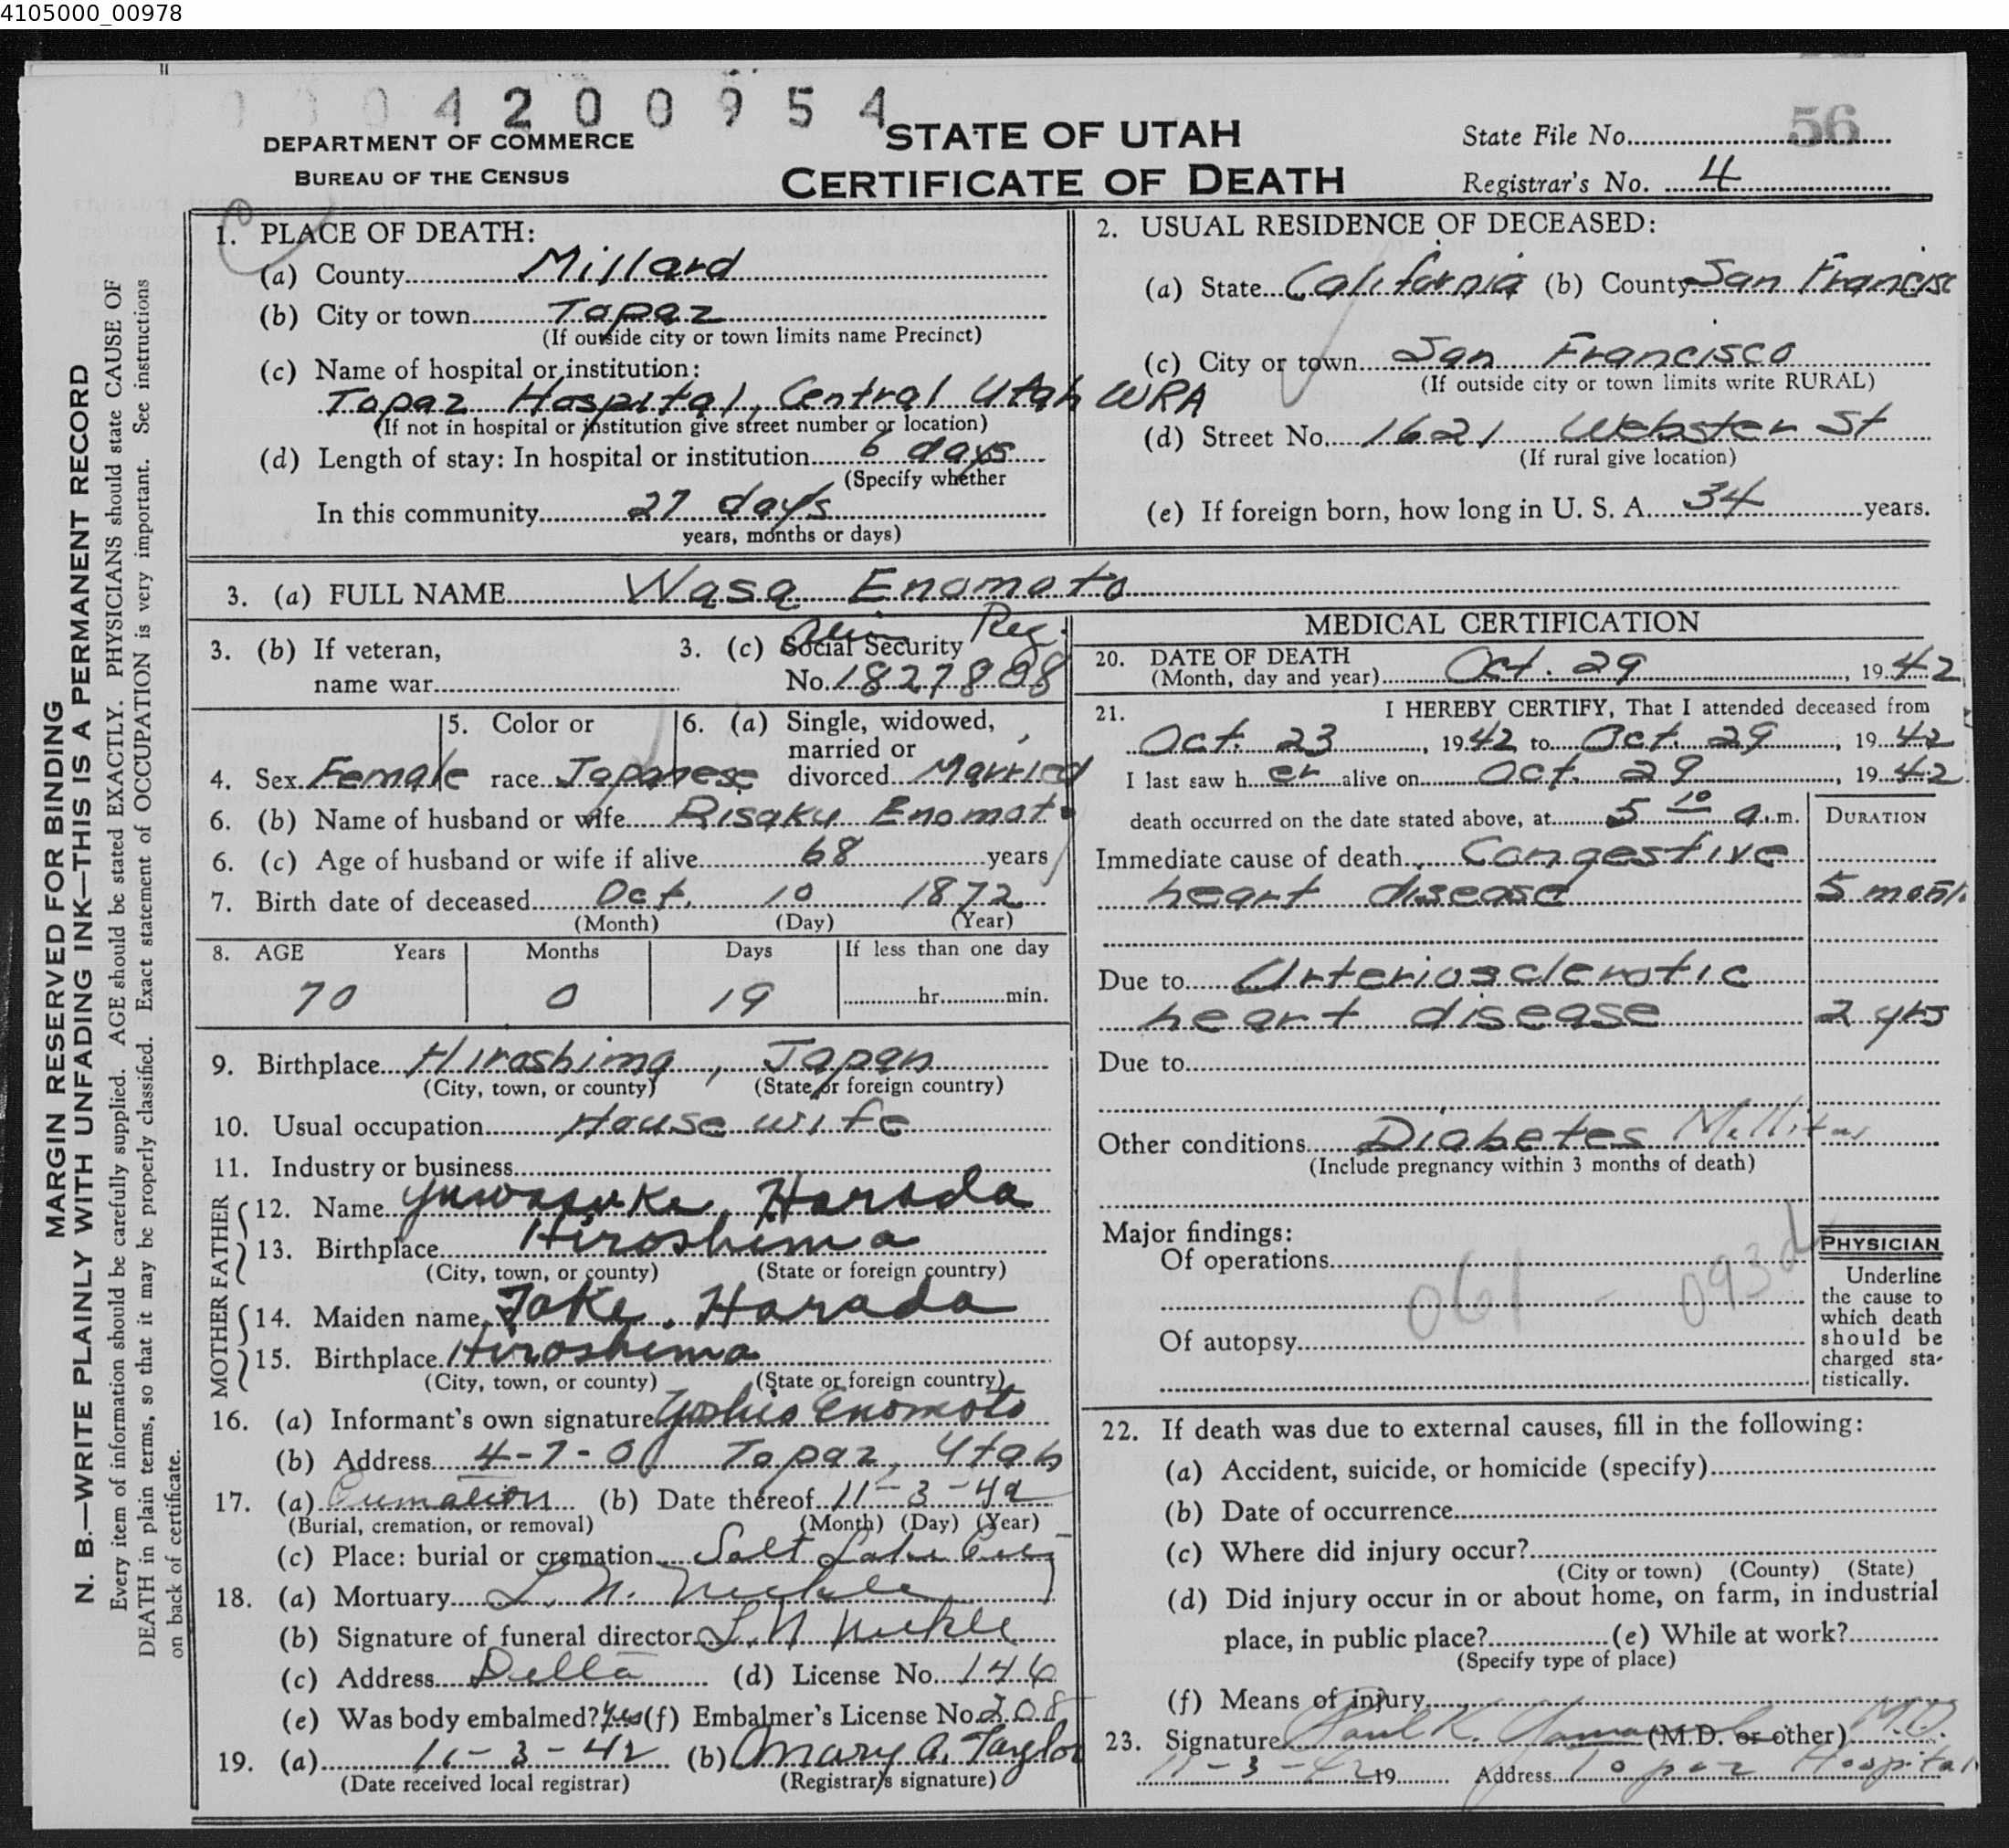 4105000_00978
4200954
DEPARTMENT OF COMMERCE
BUREAU OF THE CENSUS
STATE OF UTAH
CERTIFICATE OF DEATH
State File No. 56
Registrar's No. 4
MARGIN RESERVED FOR BINDING
N. B.—WRITE PLAINLY WITH UNFADING INK—THIS IS A PERMANENT RECORD
Every item of information should be carefully supplied. AGE should be stated EXACTLY. PHYSICIANS should state CAUSE OF
DEATH in plain terms, so that it may be properly classified. Exact statement of OCCUPATION is very important. See instructions
on back of certificate.
1. PLACE OF DEATH:
(a) County Millard
(b) City or town Topaz
(If outside city or town limits name Precinct)
(c) Name of hospital or institution:
Topaz Hospital, Central Utah WRA
(If not in hospital or institution give street number or location)
(d) Length of stay: In hospital or institution 6 days
(Specify whether
In this community 27 days
years, months or days)
2. USUAL RESIDENCE OF DECEASED:
(a) State California (b) County San Francisc
(c) City or town San Francisco
(If outside city or town limits write RURAL)
(d) Street No. 1621 Webster St
(If rural give location)
(e) If foreign born, how long in U. S. A. 34 years.
3. (a) FULL NAME Wasa Enomoto
3. (b) If veteran,
name war
3. (c) Social Security Alien Reg.
No. 1827808
4. Sex Female
5. Color or
race Japanese
6. (a) Single, widowed,
married or
divorced Married
6. (b) Name of husband or wife Risaku Enomoto
6. (c) Age of husband or wife if alive 68 years
7. Birth date of deceased Oct. 10 1872
(Month) (Day) (Year)
8. AGE Years Months Days If less than one day
70 0 19 hr. min.
9. Birthplace Hiroshima, Japan
(City, town, or county) (State or foreign country)
10. Usual occupation House wife
11. Industry or business
FATHER
12. Name Harada
13. Birthplace Hiroshima
(City, town, or county) (State or foreign country)
MOTHER
14. Maiden name Harada
15. Birthplace Hiroshima
(City, town, or county) (State or foreign country)
16. (a) Informant's own signature Yoshio Enomoto
(b) Address Topaz, Utah
17. (a) Cremation (b) Date thereof 11-3-42
(Burial, cremation, or removal) (Month) (Day) (Year)
(c) Place: burial or cremation Salt Lake City
18. (a) Mortuary L. N. Nickle
(b) Signature of funeral director L. N. Nickle
(c) Address Delta (d) License No. 146
(e) Was body embalmed? Yes (f) Embalmer's License No. 208
19. (a) 11-3-42 (b) Mary A. Taylor
(Date received local registrar) (Registrar's signature)
MEDICAL CERTIFICATION
20. DATE OF DEATH
(Month, day and year) Oct. 29, 1942
21. I HEREBY CERTIFY, That I attended deceased from
Oct. 23, 1942 to Oct. 29, 1942
I last saw her alive on Oct. 29, 1942
death occurred on the date stated above, at 5 10 a.m.
DURATION
Immediate cause of death Congestive
heart disease 5 month
Due to Arteriosclerotic
heart disease 2 yrs
Due to
Other conditions Diabetes Mellitus
(Include pregnancy within 3 months of death)
Major findings:
Of operations
061 - 093d
Of autopsy
PHYSICIAN
Underline
the cause to
which death
should be
charged sta-
tistically.
22. If death was due to external causes, fill in the following:
(a) Accident, suicide, or homicide (specify)
(b) Date of occurrence
(c) Where did injury occur?
(City or town) (County) (State)
(d) Did injury occur in or about home, on farm, in industrial
place, in public place? (e) While at work?
(Specify type of place)
(f) Means of injury
23. Signature Paul K. (M.D. or other) M.D.
11-3-42 19 Address Topaz Hospital